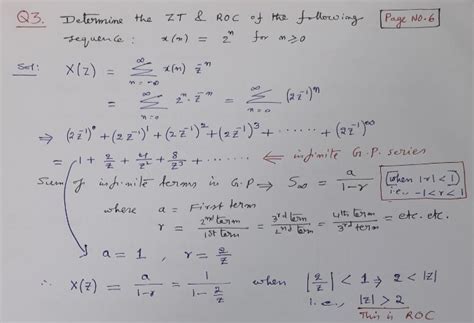 Q3. Determine the ZT & ROC of the following
Page NO. 6
sequence: x(n) = 2^n for n ≥ 0
Sol: X(z) = ∑_{n=-∞}^{∞} x(n) z^{-n}
= ∑_{n=0}^{∞} 2^n · z^{-n} = ∑_{n=0}^{∞} (2z^{-1})^n
⇒ (2z^{-1})^0 + (2z^{-1})^1 + (2z^{-1})^2 + (2z^{-1})^3 + ...... + (2z^{-1})^∞
= 1 + 2/z + 4/z^2 + 8/z^3 + ...... ⇐ infinite G.P. series
Sum of infinite terms in G.P ⇒ S_∞ = a/(1-r) (when |r| < 1)
i.e., -1 < r < 1
where a = First term
r = 2nd term/1st term = 3rd term/2nd term = 4th term/3rd term = etc. etc.
a = 1, r = 2/z
∴ X(z) = a/(1-r) = 1/(1 - 2/z) when |2/z| < 1 ⇒ 2 < |z|
i.e., |z| > 2
This is ROC